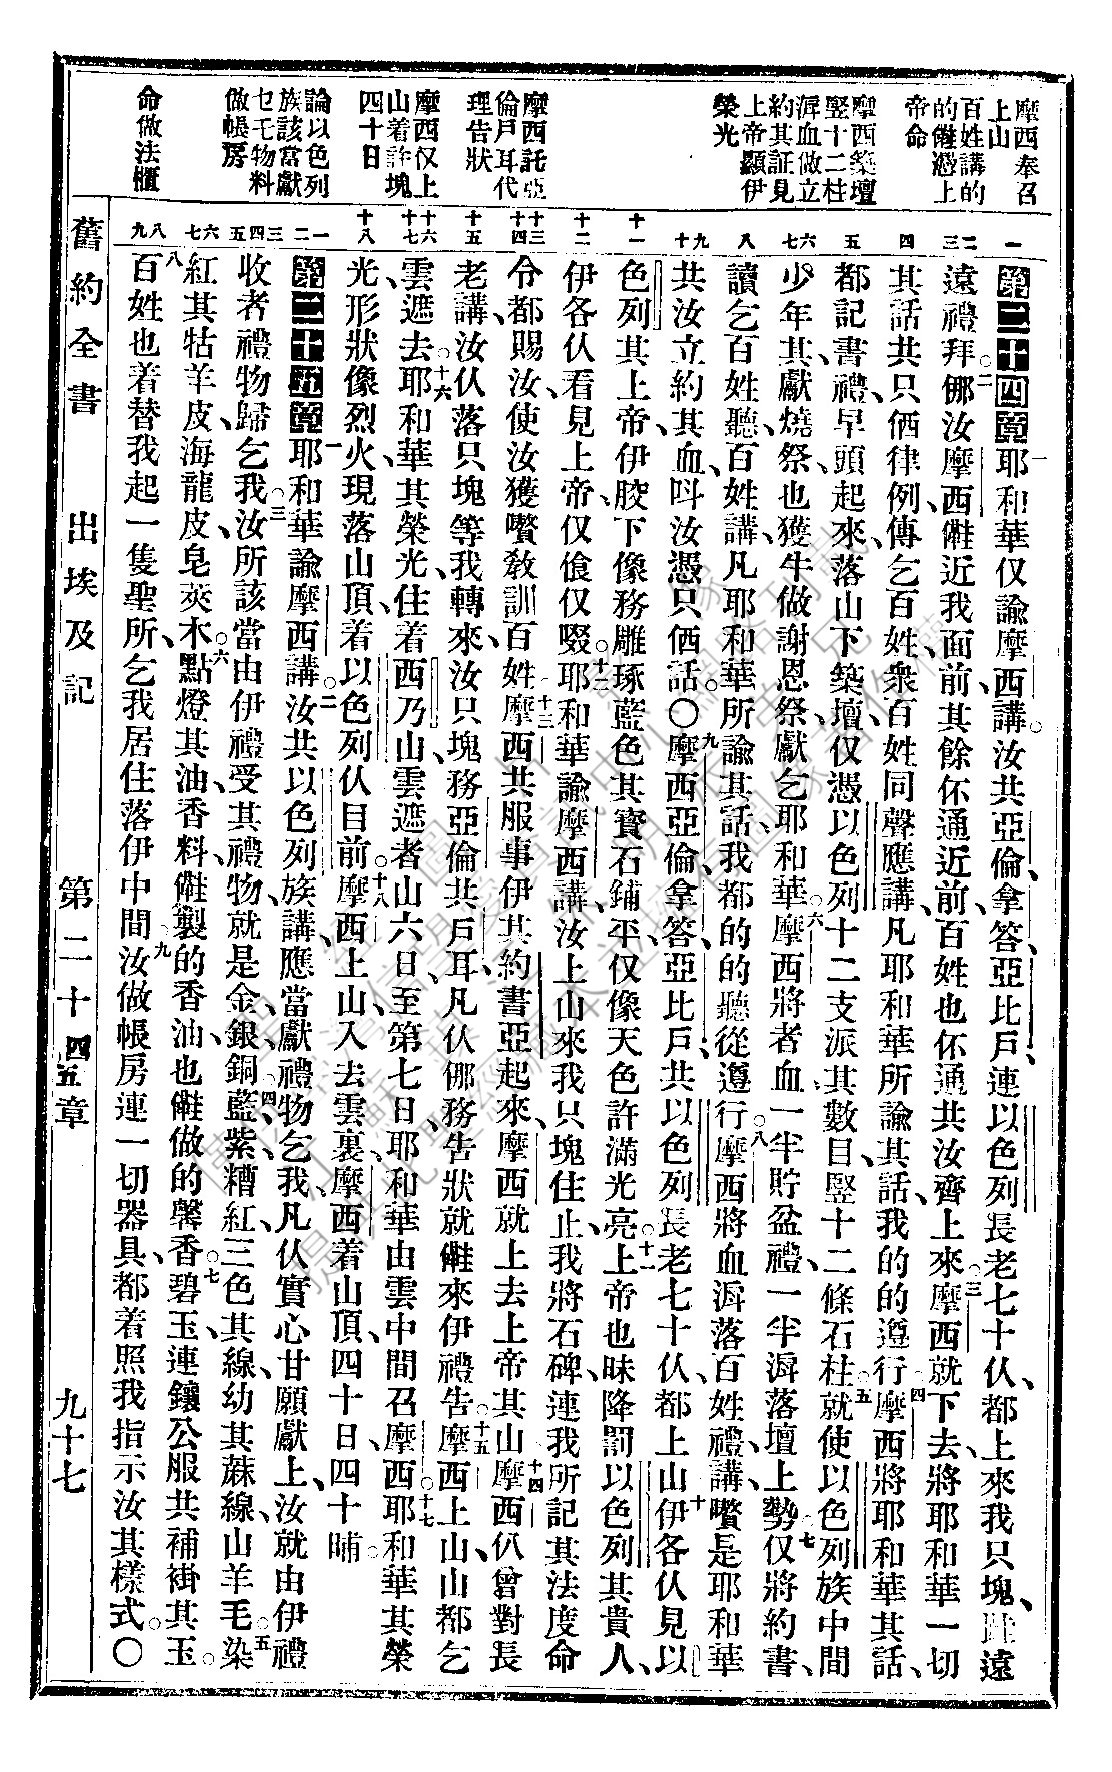 摩西奉召
上山
百姓講的
的㒁憑上
帝命
摩西築壇
豎十二柱
㴙血做立
約其証見
上帝顯伊
榮光
摩西託亞
倫戶耳代
理告狀
摩西仅上
山着許塊
四十日
論以色列
族該當獻
乜乇物料
做帳房
命做法櫃
一
二三
四
五
六七
八
九十
十一
十二
十三十四
十五
十六十七
十八
一二
三四五
六七
八九
第二十四章一耶和華仅諭摩西講。汝共亞倫、拿答、亞比戶、連以色列長老七十伩、都上來我只塊、遠
遠禮拜。二㑚汝摩西㒁近我面前、其餘伓通近前、百姓也伓通共汝齊上來。三摩西就下去、將耶和華一切
其話共只𠲥律例、傳乞百姓、衆百姓同聲應講、凡耶和華所諭其話、我的的遵行。四摩西將耶和華其話、
都記書禮、早頭起來、落山下築壇、仅憑以色列十二支派其數目、豎十二條石柱。五就使以色列族中間
少年其、獻燒祭、也獲牛做謝恩祭、獻乞耶和華。六摩西將者血、一半貯盆禮、一半㴙落壇上勢。七仅將約書、
讀乞百姓聽、百姓講、凡耶和華所諭其話、我都的的聽從遵行。八摩西將血㴙落百姓禮、講、嚽是耶和華
共汝立約其血、呌汝憑只𠲥話。〇九摩西、亞倫、拿答、亞比戶、共以色列長老七十伩、都上山。十伊各伩見以
色列其上帝、伊骹下像務雕琢藍色其寶石鋪平、仅像天色許滿光亮。十一上帝也昧降罰以色列其貴人、
伊各伩看見上帝、仅飡仅啜。十二耶和華諭摩西講、汝上山來我只塊住止、我將石碑、連我所記其法度命
令、都賜汝、使汝獲嚽教訓百姓。十三摩西共服事伊其約書亞起來、摩西就上去上帝其山。十四摩西伩曾對長
老講、汝伩落只塊等我轉來、汝只塊務亞倫共戶耳、凡伩㑚務告狀、就㒁來伊禮告。十五摩西上山、山都乞
雲遮去。十六耶和華其榮光、住着西乃山、雲遮者山六日、至第七日、耶和華由雲中間召摩西。十七耶和華其榮
光形狀像烈火、現落山頂、着以色列伩目前。十八摩西上山、入去雲裏、摩西着山頂、四十日、四十晡。
第二十五章一耶和華諭摩西講。二汝共以色列族講、應當獻禮物乞我、凡伩實心甘願獻上、汝就由伊禮
收者禮物歸乞我。三汝所該當由伊禮受其禮物、就是金、銀、銅。四藍、紫、糟紅、三色其線、幼其蔴線、山羊毛。五染
紅其牯羊皮、海龍皮、皂莢木。六點燈其油、香料、㒁製的香油、也㒁做的馨香。七碧玉、連鑲公服共補褂其玉。
八百姓也着替我起一隻聖所、乞我居住落伊中間。九汝做帳房連一切器具、都着照我指示汝其樣式。〇
舊約全書　出埃及記　第二十四五章　九十七